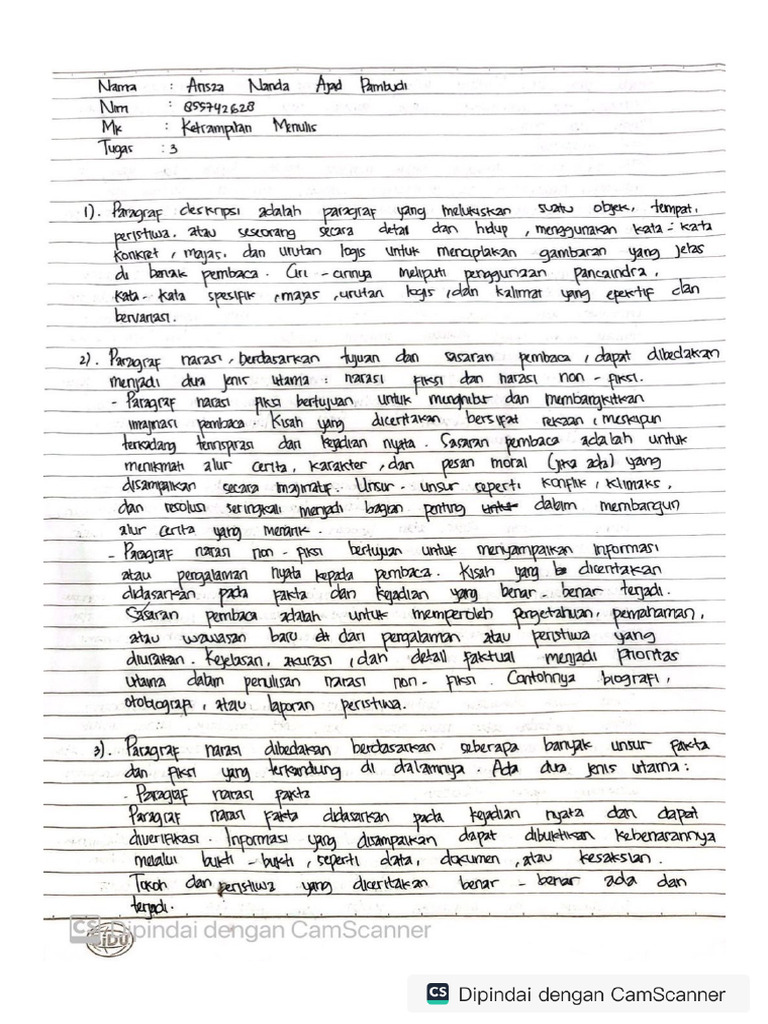 Nama : Ansza Nanda Ajad Pambudi
Nim : 855742628
Mk : Ketrampilan Menulis
Tugas : 3
1). Paragraf deskripsi adalah paragraf yang melukiskan suatu objek, tempat,
peristiwa, atau seseorang secara detail dan hidup, menggunakan kata-kata
konkret, majas, dan urutan logis untuk menciptakan gambaran yang jelas
di benak pembaca. Ciri-cirinya meliputi penggunaan pancaindra,
kata-kata spesifik, majas, urutan logis, dan kalimat yang epektif dan
bervariasi.
2). Paragraf narasi, berdasarkan tujuan dan sasaran pembaca, dapat dibedakan
menjadi dua jenis utama : narasi fiksi dan narasi non-fiksi.
- Paragraf narasi fiksi bertujuan untuk menghibur dan membangkitkan
imajinasi pembaca. Kisah yang diceritakan bersifat rekaan, meskipun
terkadang terinspirasi dari kejadian nyata. Sasaran pembaca adalah untuk
menikmati alur cerita, karakter, dan pesan moral (jika ada) yang
disampaikan secara imajinatif. Unsur-unsur seperti konflik, klimaks,
dan resolusi seringkali menjadi bagian penting dalam membangun
alur cerita yang menarik.
- Paragraf narasi non-fiksi bertujuan untuk menyampaikan informasi
atau pengalaman nyata kepada pembaca. Kisah yang diceritakan
didasarkan pada fakta dan kejadian yang benar-benar terjadi.
Sasaran pembaca adalah untuk memperoleh pengetahuan, pemahaman,
atau wawasan baru dari pengalaman atau peristiwa yang
diuraikan. Kejelasan, akurasi, dan detail faktual menjadi prioritas
utama dalam penulisan narasi non-fiksi. Contohnya biografi,
otobiografi, atau laporan peristiwa.
3). Paragraf narasi dibedakan berdasarkan seberapa banyak unsur fakta
dan fiksi yang terkandung di dalamnya. Ada dua jenis utama :
- Paragraf narasi fakta
Paragraf narasi fakta didasarkan pada kejadian nyata dan dapat
diverifikasi. Informasi yang disampaikan dapat dibuktikan kebenarannya
melalui bukti-bukti, seperti data, dokumen, atau kesaksian.
Tokoh dan peristiwa yang diceritakan benar-benar ada dan
terjadi.
CS Dipindai dengan CamScanner
jDU
CS Dipindai dengan CamScanner